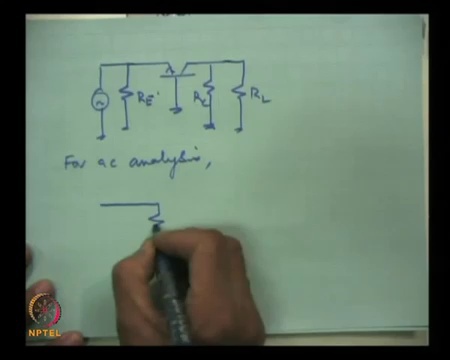 RE
RC
RL
For ac analysis,
NPTEL